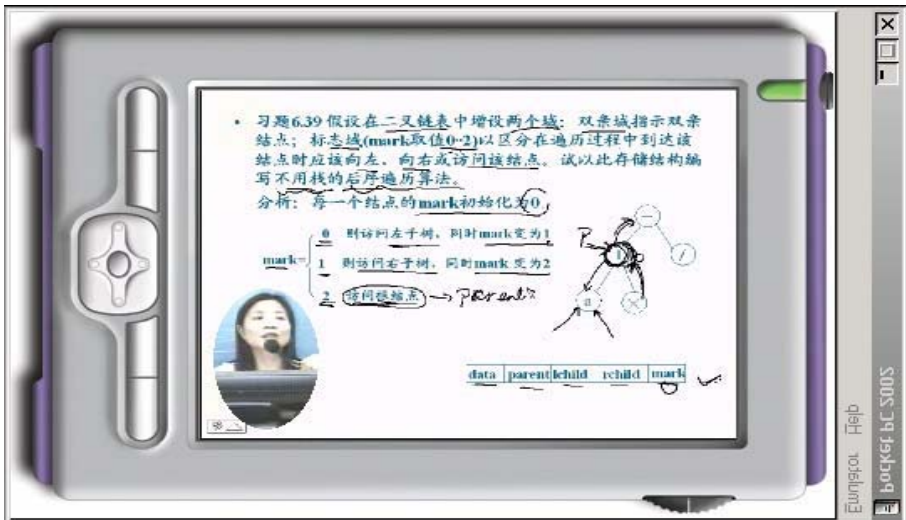 • 习题6.39 假设在二叉链表中增设两个域：双亲域指示双亲
结点；标志域(mark取值0-2)以区分在遍历过程中到达该
结点时应该向左、向右或访问该结点。试以此存储结构编
写不用栈的后序遍历算法。
分析：每一个结点的mark初始化为0,
0 则访问左子树，同时mark变为1
mark= 1 则访问右子树，同时mark 变为2
2 访问根结点 → Parent
P
−
/
a
×
data parent lchild rchild mark
Emulator Help
Pocket PC 2002